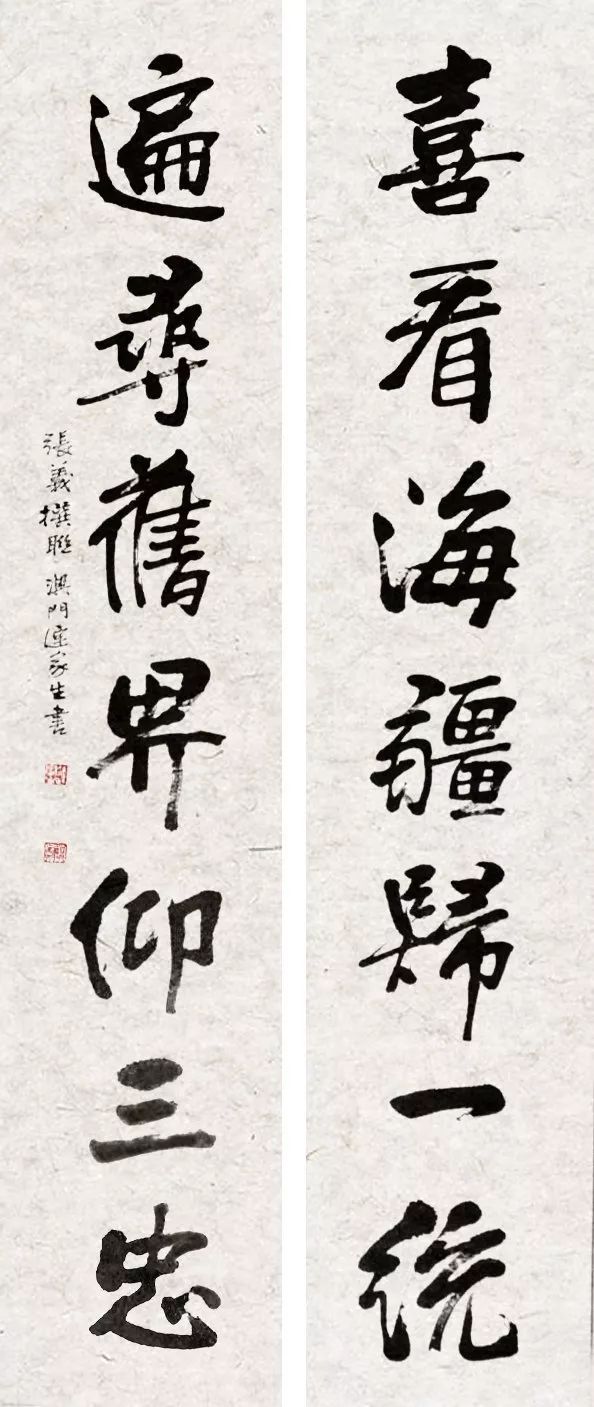 喜看海疆歸一統
遍尋舊界仰三忠
張義撰聯 澳門連家生書